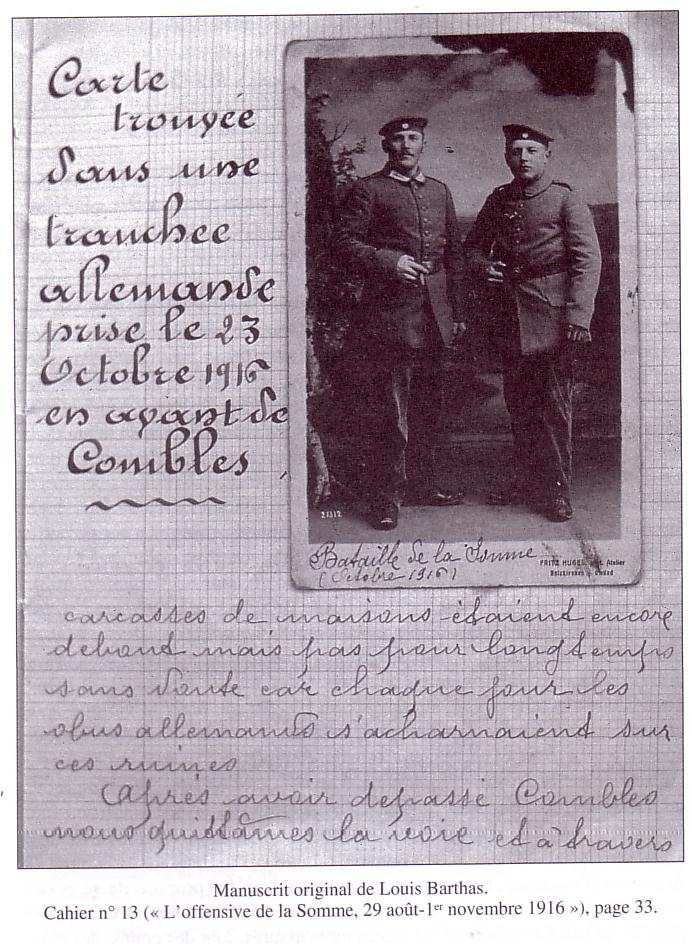 Carte
trouvée
dans une
tranchee
allemande
prise le 23
Octobre 1916
en avant de
Combles
21312
Bataille de la Somme
(Octobre 1916)
FRITZ HUGEL Atelier
Holzkirchen Gmünd
carcasses de maisons étaient encore
debout mais pas pour longtemps
sans doute car chaque jour les
obus allemands s'acharnaient sur
ces ruines
Après avoir depassé Combles
nous quittâmes la voie et à travers
Manuscrit original de Louis Barthas.
Cahier n° 13 (« L'offensive de la Somme, 29 août-1er novembre 1916 »), page 33.